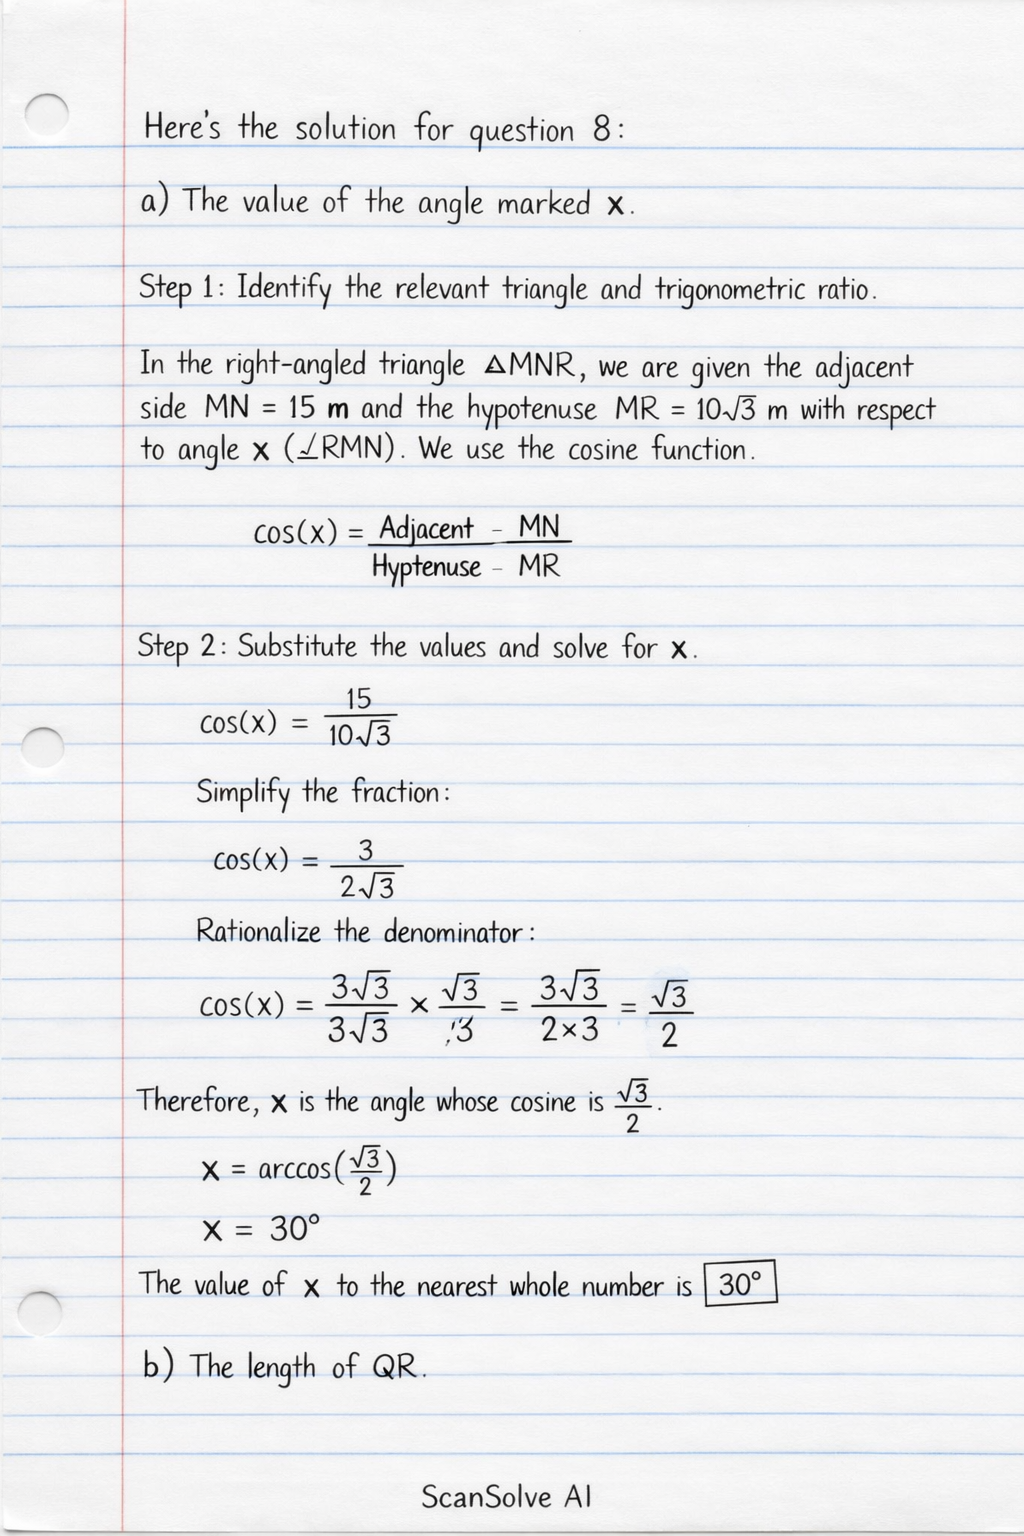 Here's the solution for question 8:
a) The value of the angle marked x.
Step 1: Identify the relevant triangle and trigonometric ratio.
In the right-angled triangle △MNR, we are given the adjacent
side MN = 15 m and the hypotenuse MR = 10√3 m with respect
to angle x (∠RMN). We use the cosine function.
cos(x) = Adjacent - MN
Hyptenuse - MR
Step 2: Substitute the values and solve for x.
cos(x) = 15 / 10√3
Simplify the fraction:
cos(x) = 3 / 2√3
Rationalize the denominator:
cos(x) = 3√3 / 3√3 × √3 / 3 = 3√3 / 2×3 = √3 / 2
Therefore, x is the angle whose cosine is √3 / 2.
x = arccos(√3 / 2)
x = 30°
The value of x to the nearest whole number is 30°
b) The length of QR.
ScanSolve AI